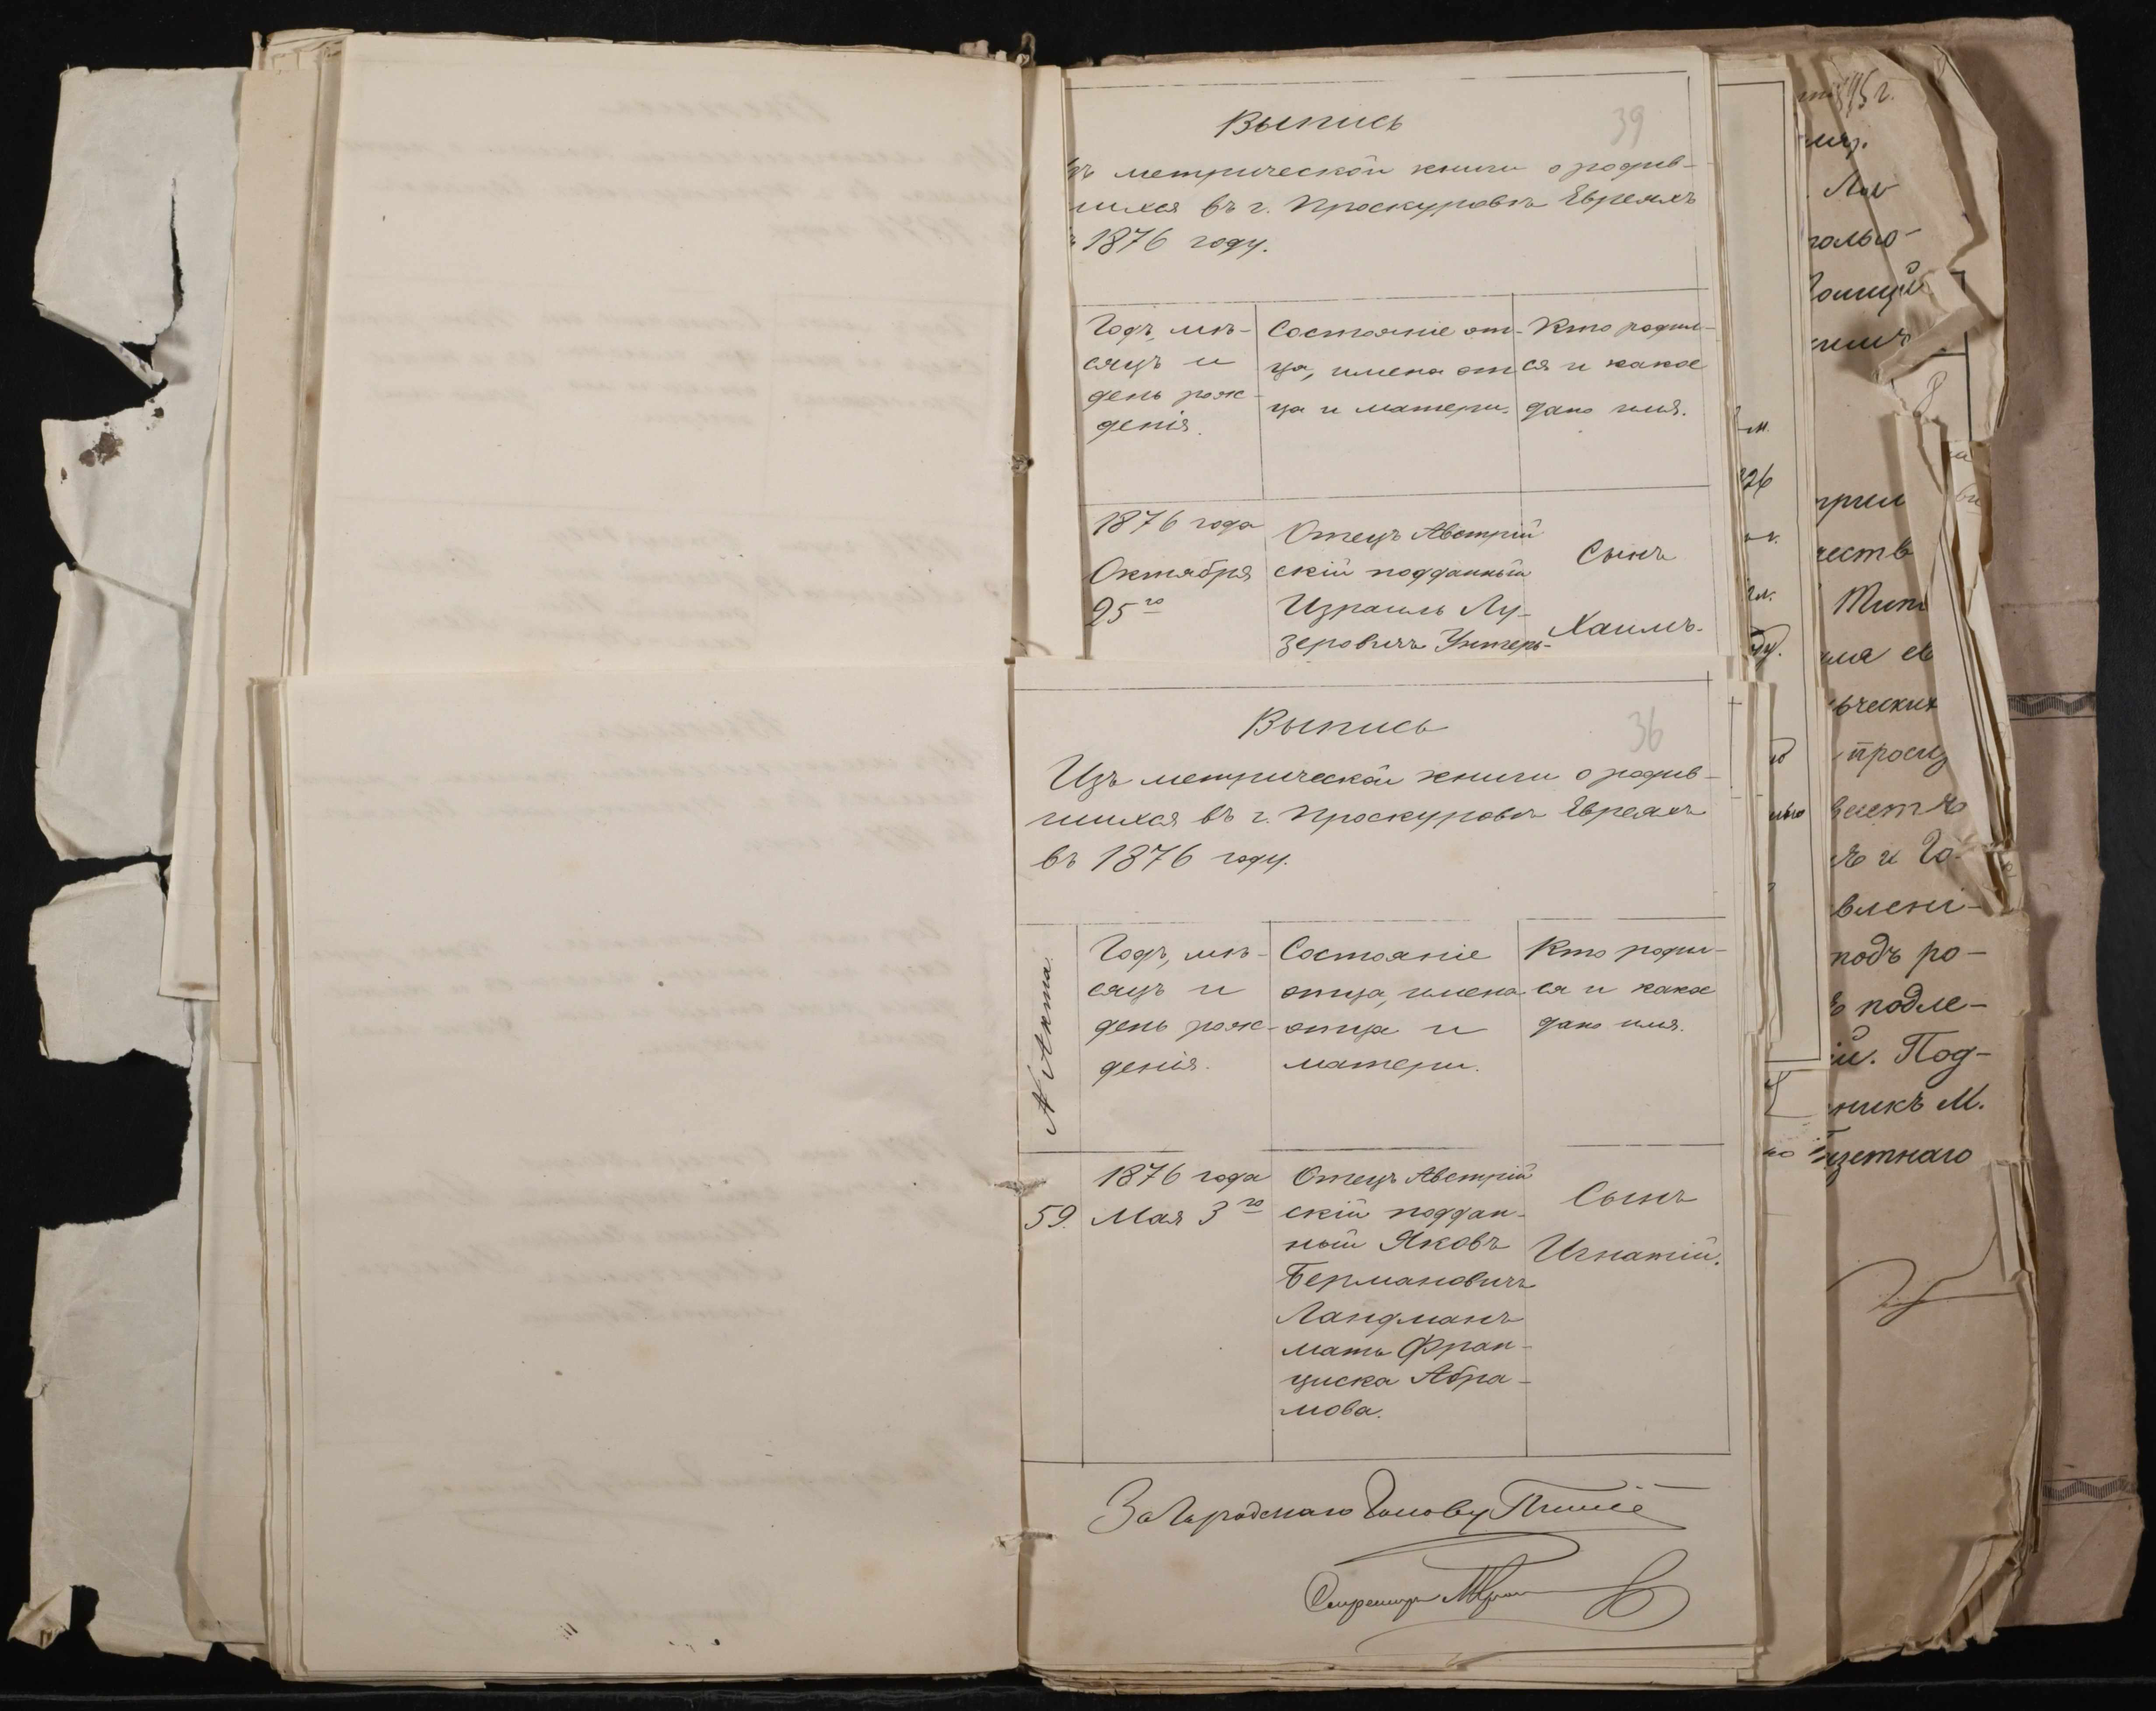 39
Выпись
зъ метрической книги о родив-
шихся въ г. Проскуровѣ Евреяхъ
1876 году.
Годъ, мѣ-
сяцъ и
день рож-
денія.
Состояніе от-
ца, имена от
ца и матери.
Кто родил-
ся и какое
дано имя.
1876 года
Октября
25го
Отецъ Австрій
скій подданный
Израиль Лу-
зеровичъ Унтеръ-
Сынъ
Хаимъ.
36
Выпись
Изъ метрической книги о родив-
шихся въ г. Проскуровѣ Евреяхъ
въ 1876 году.
№ Акта.
Годъ, мѣ-
сяцъ и
день рож-
денія.
Состояніе
отца, имена
отца и
матери.
Кто роди-
ся и какое
дано имя.
59.
1876 года
Мая 3го
Отецъ Австрій
скій поддан-
ный Яковъ
Бермановичъ
Ландманъ
мать Фран-
циска Абра-
мова.
Сынъ
Игнатій.
За Городскаго Голову
Секретарь
26
прил
честв
ческих
подъ ро-
подле-
й. Под-
никъ М.